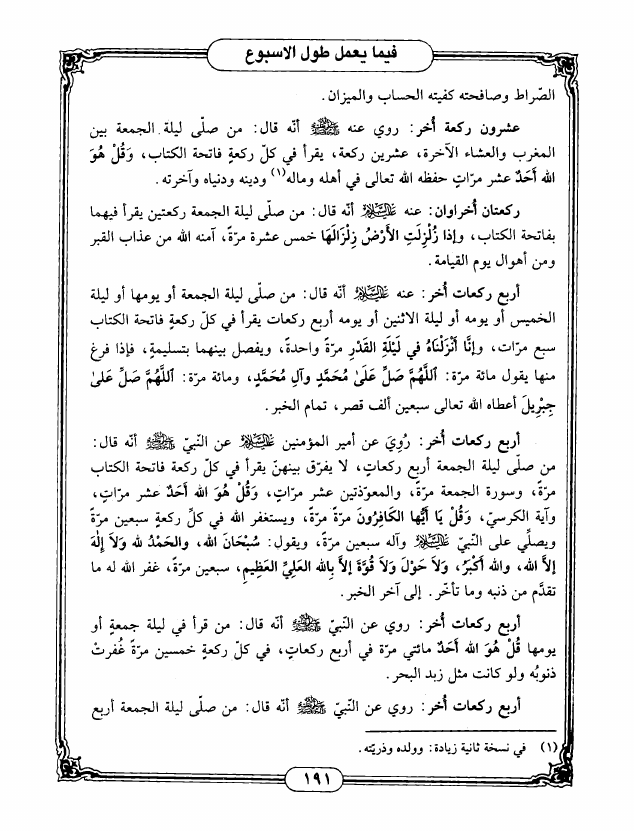 فيما يعمل طول الاسبوع
الصّراط وصافحته كفيته الحساب والميزان.
عشرون ركعة أُخر: روي عنه ﷺ أنّه قال: من صلّى ليلة الجمعة بين
المغرب والعشاء الآخرة، عشرين ركعة، يقرأ في كلّ ركعةٍ فاتحة الكتاب، وَقُلْ هُوَ
الله أَحَدٌ عشر مرّاتٍ حفظه الله تعالى في أهله وماله(١) ودينه ودنياه وآخرته.
ركعتان أُخراوان: عنه عَلَيْهِ السَّلَامُ أنّه قال: من صلّى ليلة الجمعة ركعتين يقرأ فيهما
بفاتحة الكتاب، وإذا زُلْزِلَتِ الأَرْضُ زِلْزَالَهَا خمس عشرة مرّةً، آمنه الله من عذاب القبر
ومن أهوال يوم القيامة.
أربع ركعات أُخر: عنه عَلَيْهِ السَّلَامُ أنّه قال: من صلّى ليلة الجمعة أو يومها أو ليلة
الخميس أو يومه أو ليلة الاثنين أو يومه أربع ركعات يقرأ في كلّ ركعةٍ فاتحة الكتاب
سبع مرّات، وإنَّا أَنْزَلْنَاهُ في لَيْلَةِ القَدْرِ مرّةً واحدةً، ويفصل بينهما بتسليمةٍ، فإذا فرغ
منها يقول مائة مرّة: اَللَّهُمَّ صَلِّ عَلىٰ مُحَمَّدٍ وآلِ مُحَمَّدٍ، ومائة مرّة: اَللَّهُمَّ صَلِّ عَلىٰ
جِبْرِيلَ أعطاه الله تعالى سبعين ألف قصر، تمام الخبر.
أربع ركعات أُخر: رُوِيَ عن أمير المؤمنين عَلَيْهِ السَّلَامُ عن النّبيّ ﷺ أنّه قال:
من صلّى ليلة الجمعة أربع ركعاتٍ، لا يفرّق بينهنّ يقرأ في كلّ ركعة فاتحة الكتاب
مرّةً، وسورة الجمعة مرّةً، والمعوّذتين عشر مرّاتٍ، وَقُلْ هُوَ الله أَحَدٌ عشر مرّاتٍ،
وآية الكرسيّ، وَقُلْ يَا أَيُّها الكَافِرُونَ مرّةً مرّةً، ويستغفر الله في كلِّ ركعةٍ سبعين مرّةً
ويصلّي على النّبيّ عَلَيْهِ السَّلَامُ وآله سبعين مرّةً، ويقول: سُبْحَانَ الله، والحَمْدُ لله وَلاَ إِلَهَ
إلاَّ الله، والله أَكْبَرُ، وَلاَ حَوْلَ وَلاَ قُوَّةَ إلاَّ بِالله العَلِيِّ العَظِيمِ، سبعين مرّةً، غفر الله له ما
تقدَّم من ذنبه وما تأخّر. إلى آخر الخبر.
أربع ركعات أُخر: روي عن النّبيّ ﷺ أنّه قال: من قرأ في ليلة جمعةٍ أو
يومها قُلْ هُوَ الله أَحَدٌ مائتي مرّة في أربع ركعاتٍ، في كلّ ركعةٍ خمسين مرّةً غُفرتْ
ذنوبُه ولو كانت مثل زبد البحر.
أربع ركعات أُخر: روي عن النّبيّ ﷺ أنّه قال: من صلّى ليلة الجمعة أربع
(١) في نسخة ثانية زيادة: وولده وذريّته.
١٩١